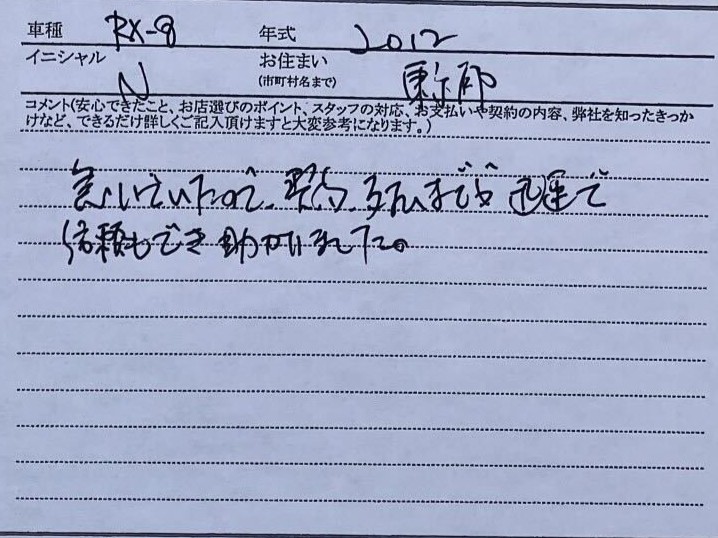 車種 RX-8 年式 2012
イニシャル N お住まい(市町村名まで) 東京都
コメント(安心できたこと、お店選びのポイント、スタッフの対応、お支払いや契約の内容、弊社を知ったきっか
けなど、できるだけ詳しくご記入頂けますと大変参考になります。)
急いでいたので、契約、支払まで迅速で
信頼もでき助かりました。